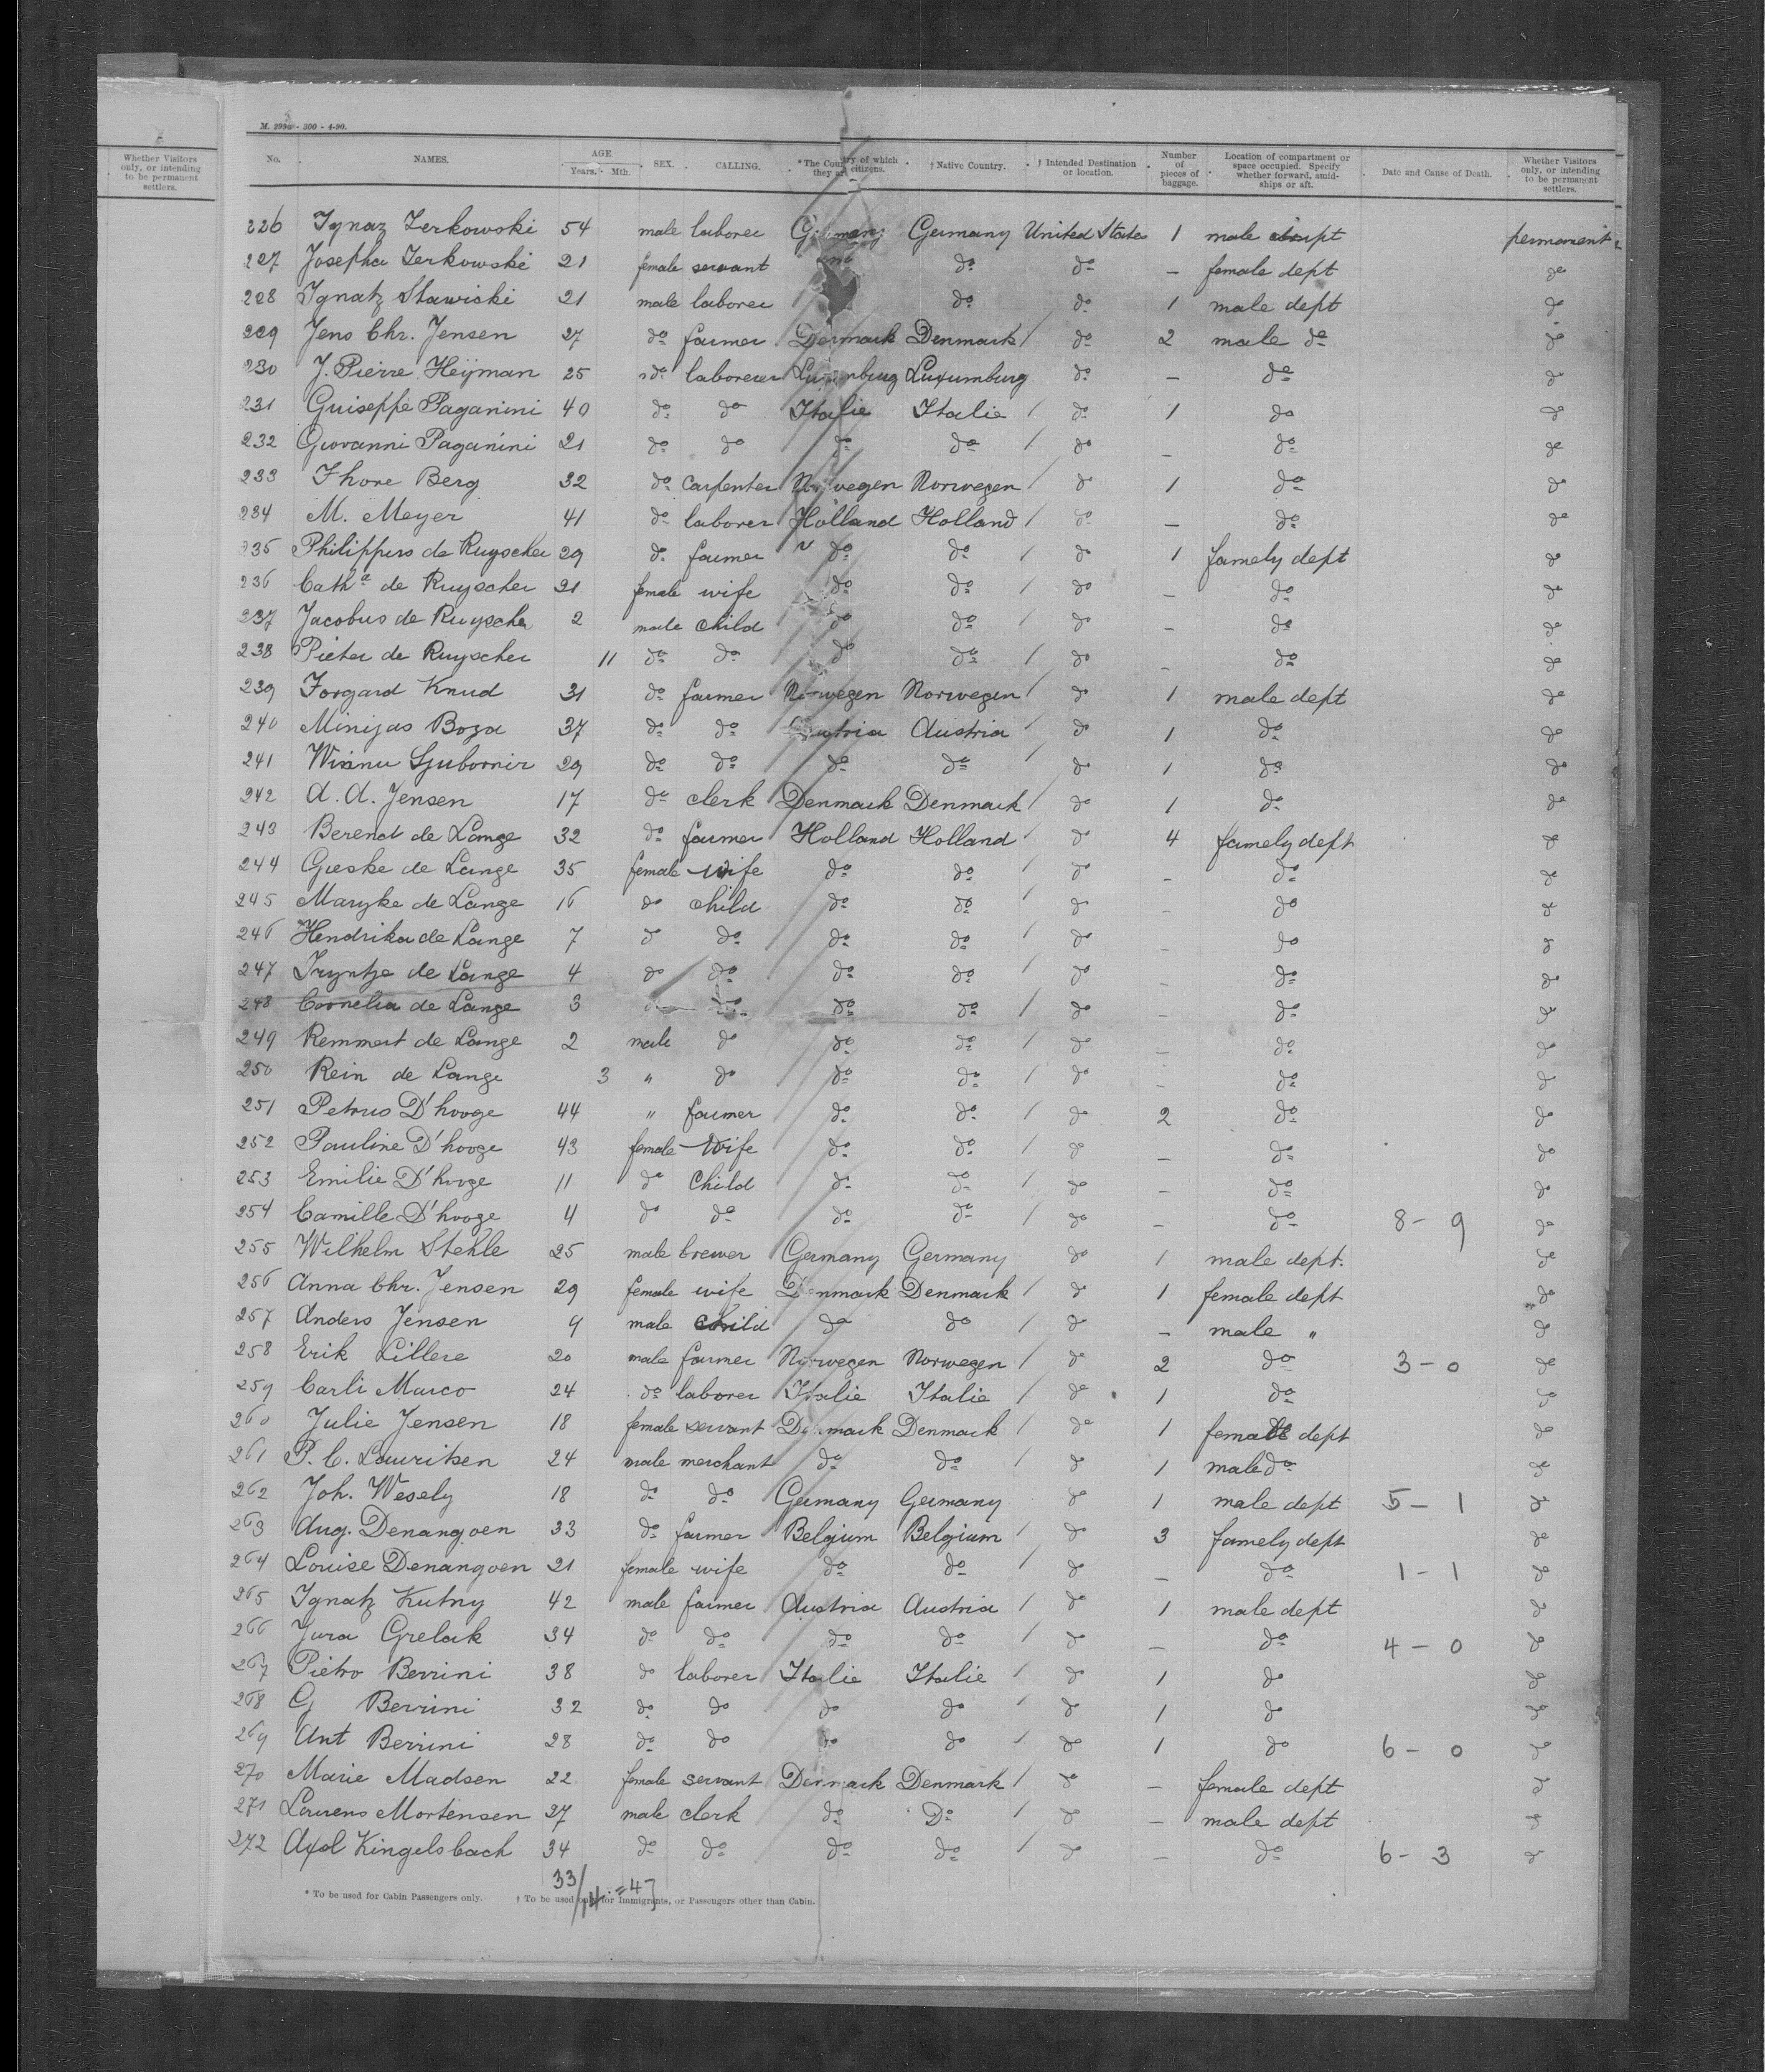 M. 299a - 300 - 4-90.
Whether Visitors only, or intending to be permanent settlers.
No. NAMES. AGE. Years. Mth. SEX. CALLING. *The Country of which they are citizens. †Native Country. †Intended Destination or location. Number of pieces of baggage. Location of compartment or space occupied. Specify whether forward, amidships or aft. Date and Cause of Death. Whether Visitors only, or intending to be permanent settlers.
226 Ignaz Zerkowski 54 male laborer Germany Germany United States 1 male dept permanent
227 Josepha Zerkowski 21 female servant do do - female dept do
228 Ignatz Stawicki 21 male laborer do do 1 male dept do
229 Jens Chr. Jensen 27 do farmer Denmark Denmark / do 2 male do do
230 J. Pierre Heyman 25 do laborer Luxumburg Luxumburg do - do do
231 Guiseppe Paganini 40 do do Italie Italie / do 1 do do
232 Giovanni Paganini 21 do do do do / do - do do
233 Thore Berg 32 do carpenter Norwegen Norwegen / do 1 do do
234 M. Meyer 41 do laborer Holland Holland / do - do do
235 Philippus de Ruyscher 29 do farmer do do / do 1 famely dept do
236 Catha de Ruyscher 21 female wife do do / do - do do
237 Jacobus de Ruyscher 2 male child do do / do - do do
238 Pieter de Ruyscher 11 do do do do / do - do do
239 Forgard Knud 31 do farmer Norwegen Norwegen / do 1 male dept do
240 Minijas Boza 37 do do Austria Austria / do 1 do do
241 Ljubornir 29 do do do do / do 1 do do
242 A. A. Jensen 17 do clerk Denmark Denmark / do 1 do do
243 Berend de Lange 32 do farmer Holland Holland / do 4 famely dept do
244 Gieske de Lange 35 female wife do do / do - do do
245 Maryke de Lange 16 do child do do / do - do do
246 Hendrika de Lange 7 do do do do / do - do do
247 Tryntje de Lange 4 do do do do / do - do do
248 Cornelia de Lange 3 do do do do / do - do do
249 Remmert de Lange 2 male do do do / do - do do
250 Rein de Lange 3 " do do do / do - do do
251 Petrus D'hooge 44 " farmer do do / do 2 do do
252 Pauline D'hooge 43 female wife do do / do - do do
253 Emilie D'hooge 11 do child do do / do - do do
254 Camille D'hooge 4 do do do do / do - do 8 - 9 do
255 Wilhelm Stehle 25 male brewer Germany Germany do 1 male dept. do
256 Anna Chr. Jensen 29 female wife Denmark Denmark / do 1 female dept do
257 Anders Jensen 9 male child do do / do - male " do
258 Erik Lillere 20 male farmer Norwegen Norwegen / do 2 do 3 - 0 do
259 Carli Marco 24 do laborer Italie Italie / do 1 do do
260 Julie Jensen 18 female servant Denmark Denmark / do 1 female dept do
261 P. C. Lauritsen 24 male merchant do do / do 1 male do do
262 Joh. Wesely 18 do do Germany Germany do 1 male dept 5 - 1 do
263 Aug. Denangoen 33 do farmer Belgium Belgium / do 3 famely dept do
264 Louise Denangoen 21 female wife do do / do - do 1 - 1 do
265 Ignatz Kutny 42 male farmer Austria Austria / do 1 male dept do
266 Jura Grelak 34 do do do do / do - do 4 - 0 do
267 Pietro Berrini 38 do laborer Italie Italie / do 1 do do
268 G Berrini 32 do do do do / do 1 do do
269 Ant Berrini 28 do do do do / do 1 do 6 - 0 do
270 Marie Madsen 22 female servant Denmark Denmark / do - female dept do
271 Laurens Mortensen 27 male clerk do Do / do - male dept do
272 Axel Kingelsbach 34 do do do do / do - do 6 - 3 do
33/14 = 47
* To be used for Cabin Passengers only. † To be used only for Immigrants, or Passengers other than Cabin.